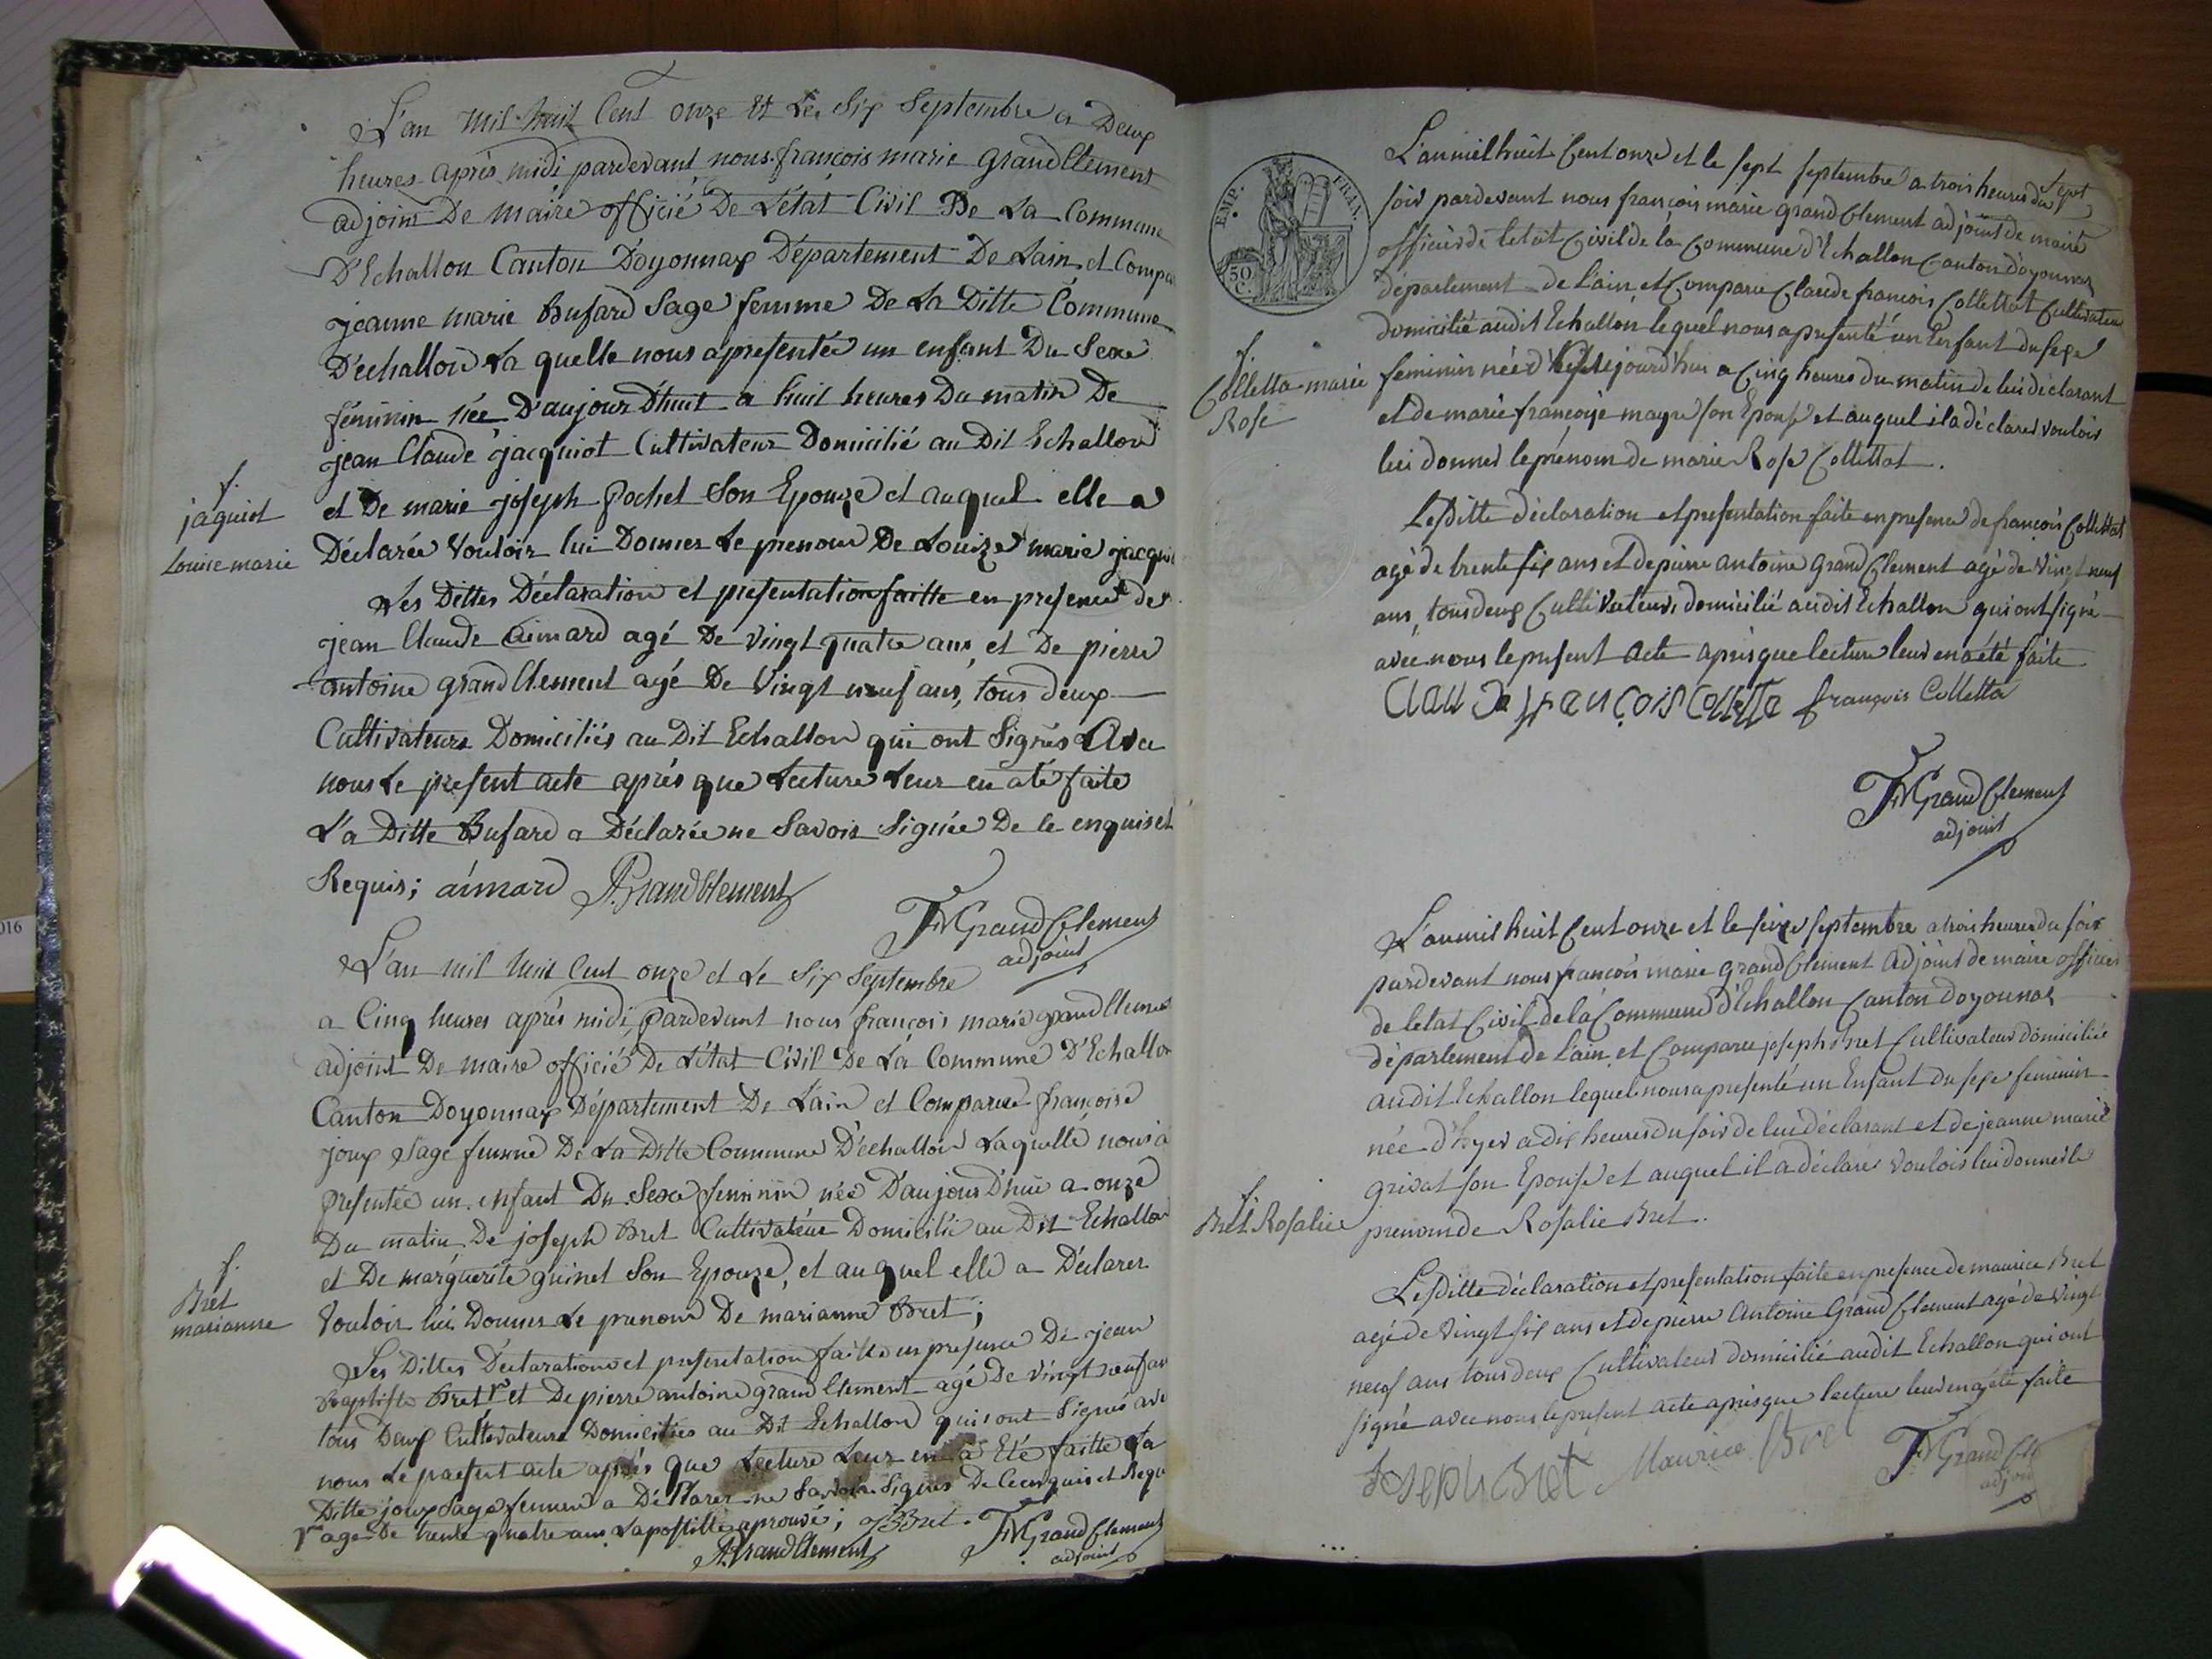 L'an mil huit Cent onze et Le Six Septembre a Deux
heures après midi pardevant nous françois marie grandClement
adjoint De maire officié De L'état Civil De La Commune
D'Echallon Canton D'oyonnax Département De Lain et Compa
jeanne marie Bufard Sage femme De La Ditte Commune
D'echallon La quelle nous apresentée un enfant Du Sexe
féminin née D'aujourd'huit a huit heures Du matin De
jean Claude jacquiot Cultivateur Domicilié au Dit Echallon
et De marie joseph Pochet Son Epouze et auquel elle a
Déclarée Vouloir lui Donner Le prenom De Louize marie jacqui
f.
jaquiot
Louise marie
Les Dittes Déclaration et presentation faitte en presence de
jean Claude aimard agé De Vingt quatre ans, et De pierre
antoine grandClement agé De Vingt neuf ans, tous deux
Cultivateurs Domiciliés au Dit Echallon qui ont Signés Avec
nous Le present acte après que Lecture Leur en a té faite
La Ditte Bufard a Déclarée ne Savoir Signée De ce enquis et
Requis; aimard P. GrandClement
FMGrandClement
adjoint
L'an mil huit Cent onze et Le Six Septembre
a Cinq heures après midi, Pardevant nous françois marie grandClement
adjoint De maire officié De L'état Civil De La Commune D'Echallon
Canton Doyonnax Département De Lain et Comparue françoise
joux Sage femme De La Ditte Commune D'echallon Laquelle nous a
presentée un enfant Du Sexe feminin née D'aujourd'hui a onze
Du matin De joseph Bret Cultivateur Domicilié au Dit Echallon
et De marguerite guinet Son Epouze, et auquel elle a Déclarer
Vouloir lui Donner Le prenom De marianne Bret;
f.
Bret
marianne
Les Dittes Déclaration et presentation faitte en presence De jean
Baptiste Bret et De pierre antoine grandClement agé De Vingt neuf an
tous Deux Cultivateurs Domiciliés au Dit Echallon qui ont Signés ave
nous Le present acte après que Lecture Leur en a Eté faitte La
Ditte joux Sage femme a Déclarer ne Savoir Signer De ce enquis et Requ
agé De trente quatre ans Lapostille aprouvé; JBBret.
P. GrandClement
FMGrandClement
adjoint
EMP. FRAN.
50
C.
L'an mil huit Cent onze et le sept septembre a trois heures du sept
soir pardevant nous françois marie grand Clement adjoint de maire
officier de letat Civil de la Commune d'Echallon Canton d'oyonnax
département de L'ain, et Comparu Claude françois Collettat Cultivateur
domicilié audit Echallon, lequel nous a presenté un Enfant du sexe
feminin née d' jourd'hui a Cinq heures du matin de lui déclarant
et de marie françoise mayre son Epouse et auquel il a déclarer vouloir
lui donner le prénom de marie Rose Collettat.
f.
Colletta marie
Rose
Lesditte déclaration et presentation faite en presence de françois Collettat
agé de trente six ans et de pierre antoine Grand Clement agé de Vingt neuf
ans, tous deux Cultivateurs domicilié audit Echallon qui ont signé
avec nous le present acte après que lecture leur en a été faite
Claude françois Colletta françois Colletta
FMGrandClement
adjoint
L'an mil huit Cent onze et le seize septembre a trois heures du soir
pardevant nous françois marie grand Clement Adjoint de maire officier
de letat Civil de la Commune d'Echallon Canton doyonnax
département de L'ain, et Comparu joseph Bret Cultivateur domiciliée
audit Echallon lequel nous a presenté un Enfant du sexe feminin
née d'hyer a dix heures du soir de lui déclarant et de jeanne marie
grivat son Epouse et auquel il a déclarer vouloir lui donner le
prenom de Rosalie Bret.
f.
Bret Rosalie
Lesditte déclaration et presentation faite en presence de maurice Bret
agé de Vingt six ans et de pierre Antoine Grand Clement agé de Vingt
neuf ans tous deux Cultivateurs domicilié audit Echallon qui ont
signé avec nous le present acte après que lecture leur en a été faite
Joseph Bret Maurice Bret
FMGrandCle
adjoin
016